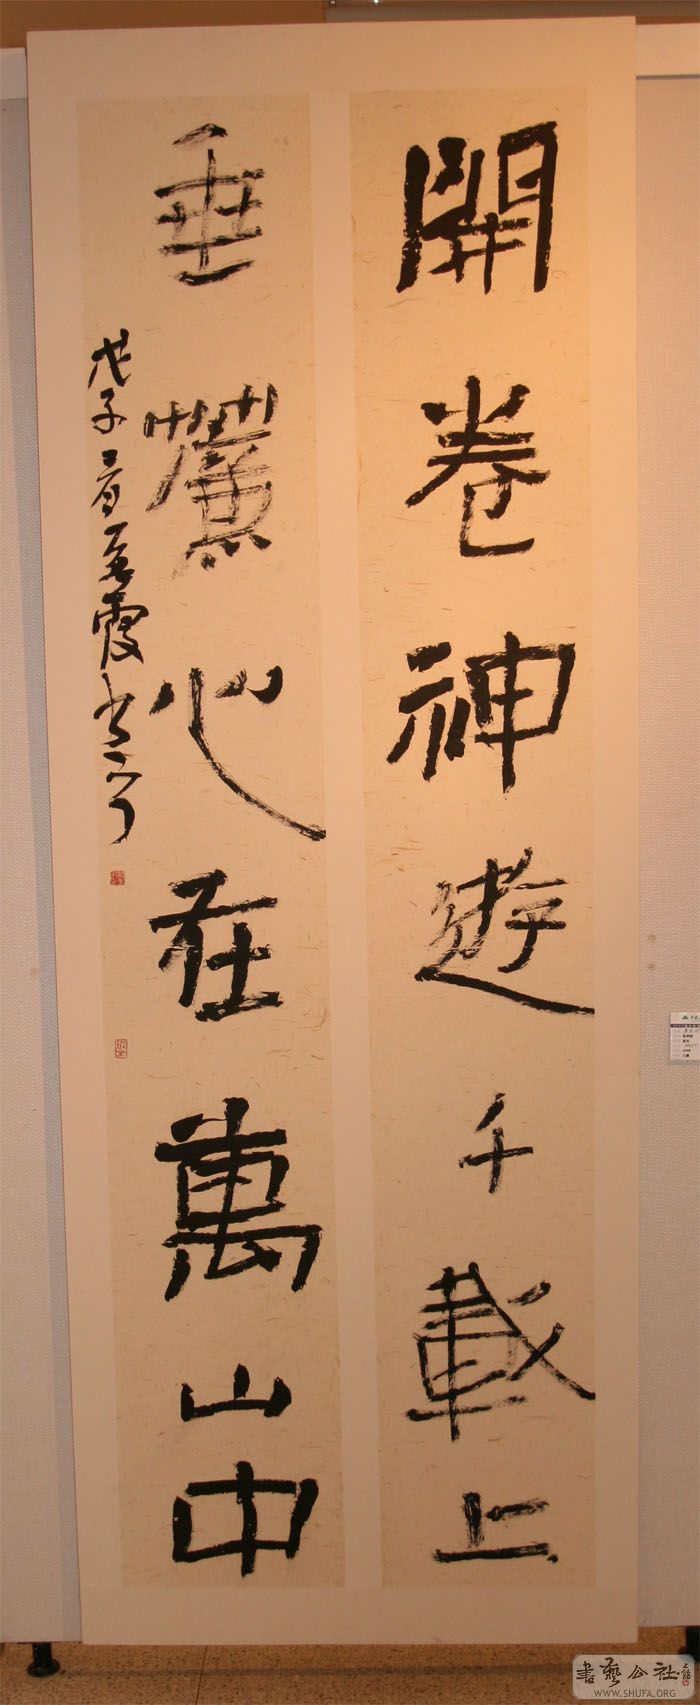 開卷神遊千載上
垂簾心在萬山中
戊子
書藝公社
WWW.SHUFA.ORG